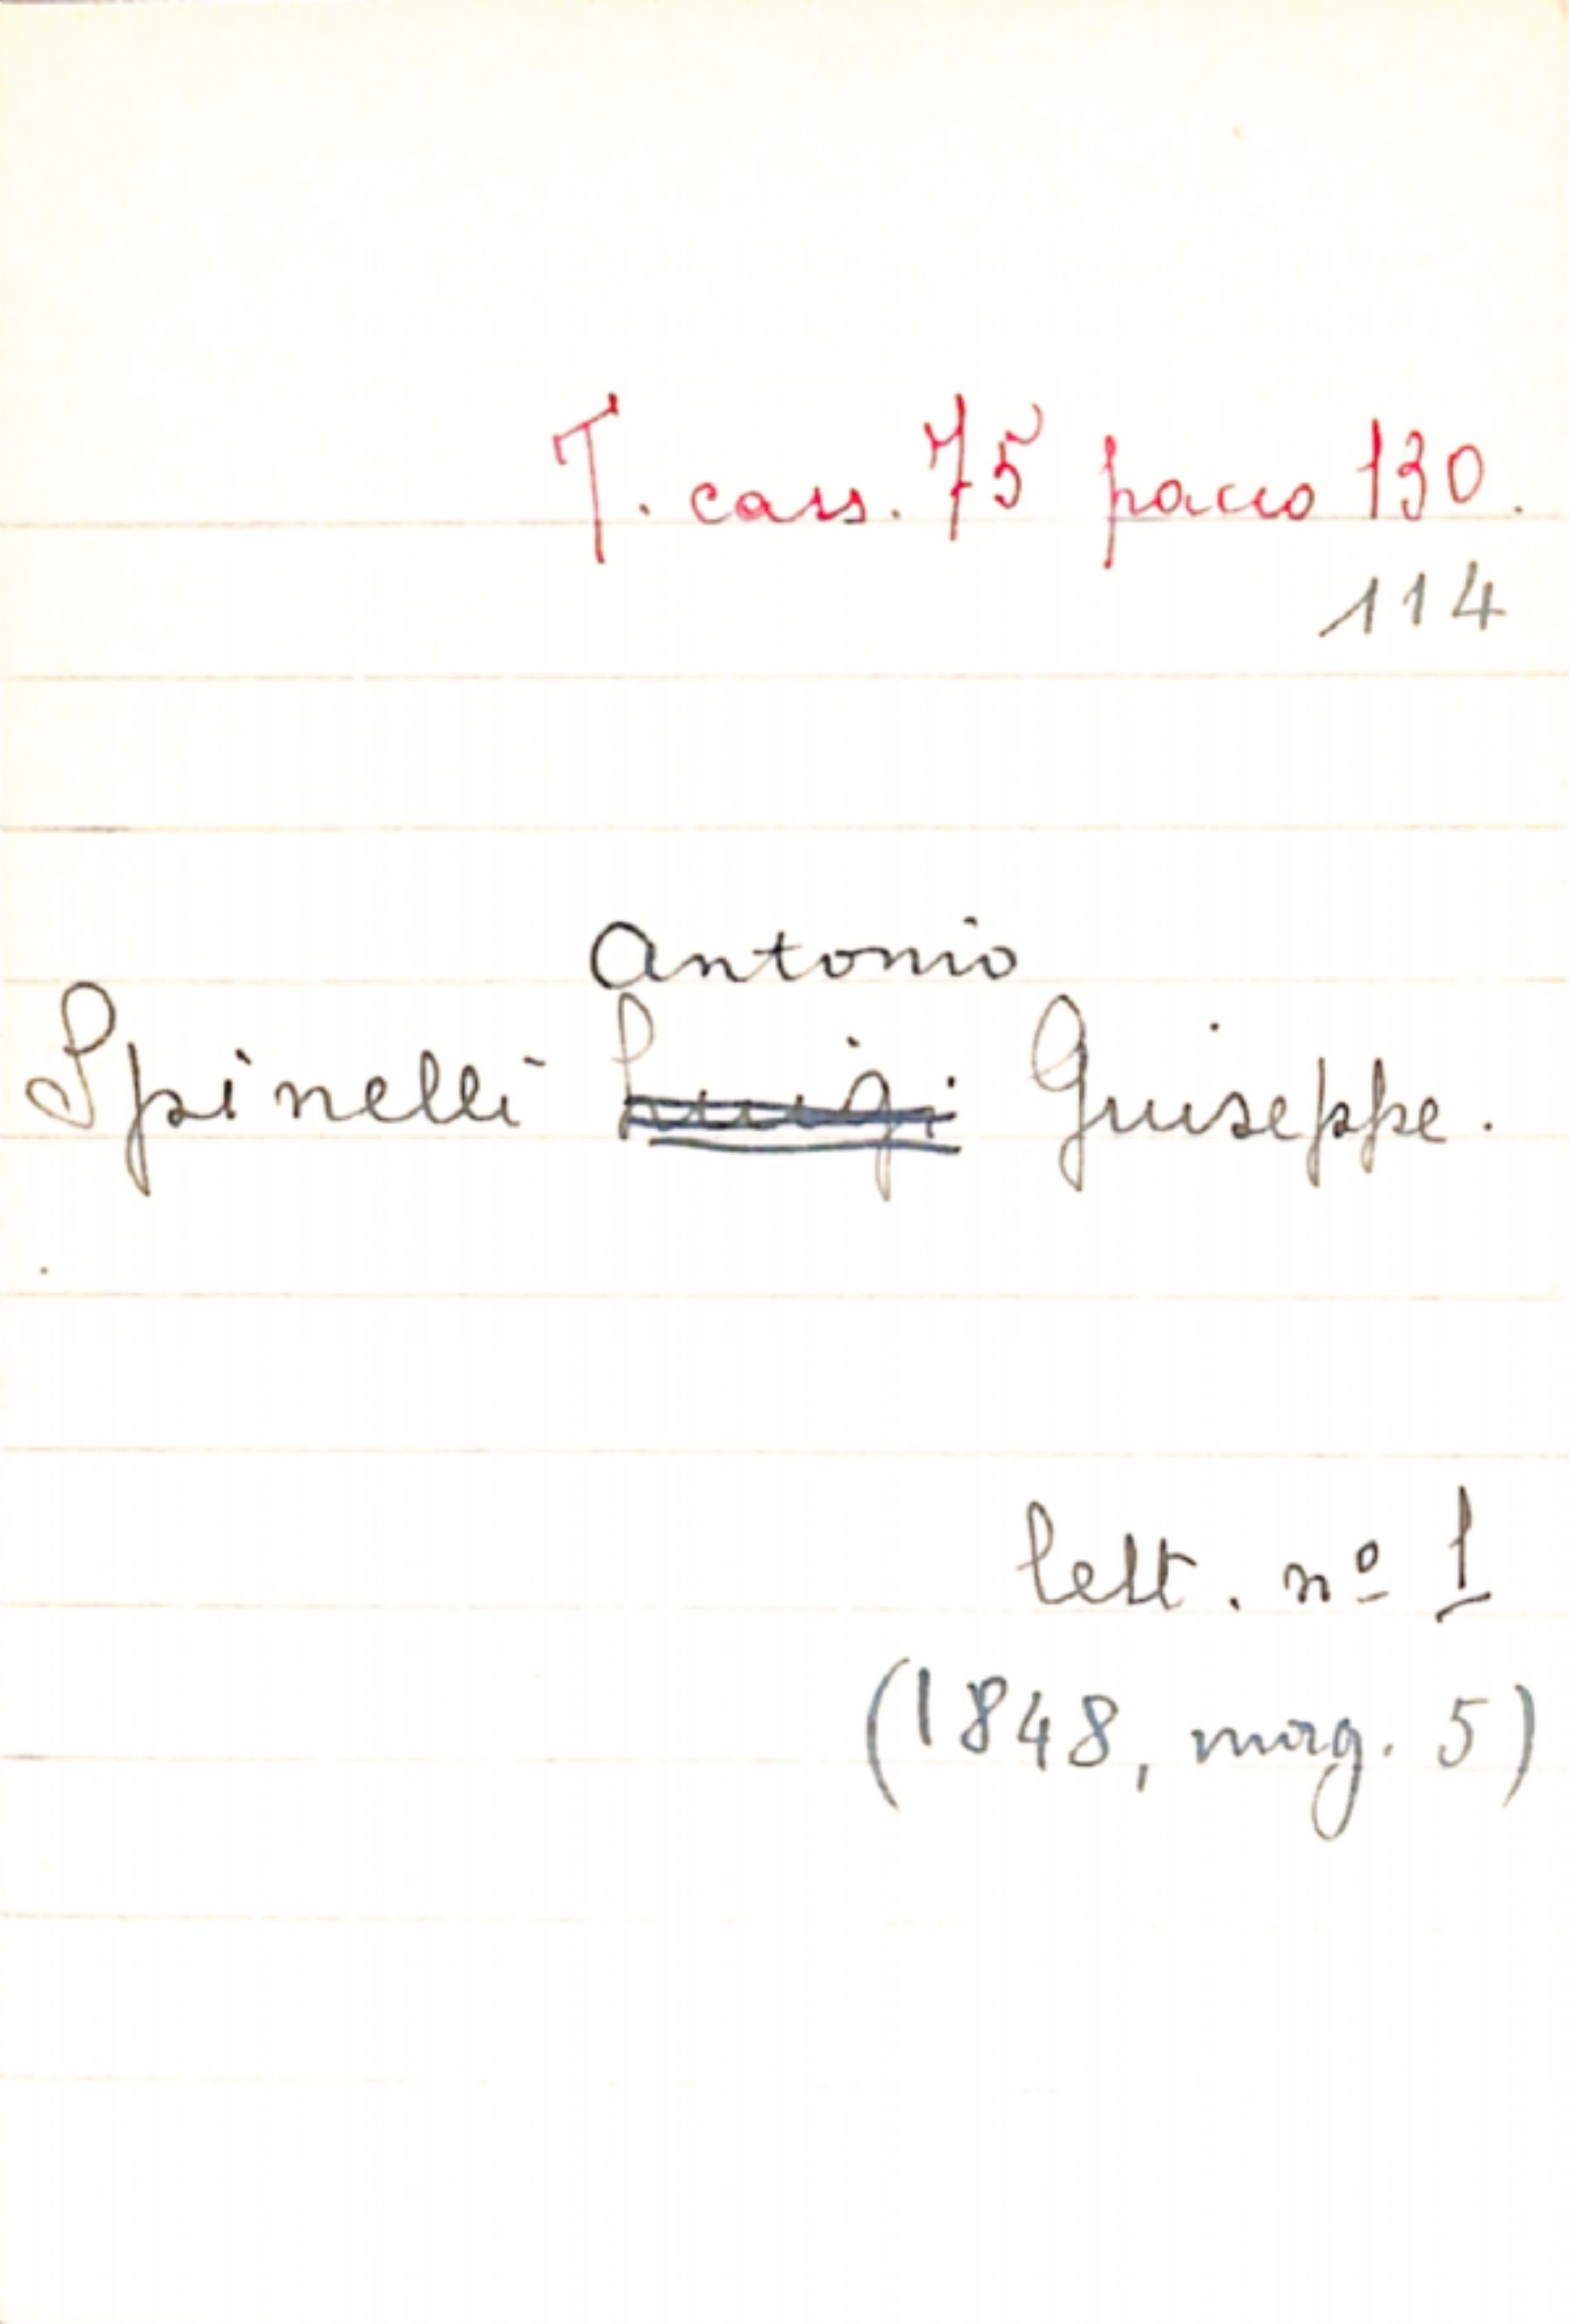 T. cass. 75 pacco 130.
114
Antonio
Spinelli Luigi Giuseppe.
lett. nº 1
(1848, mag. 5)